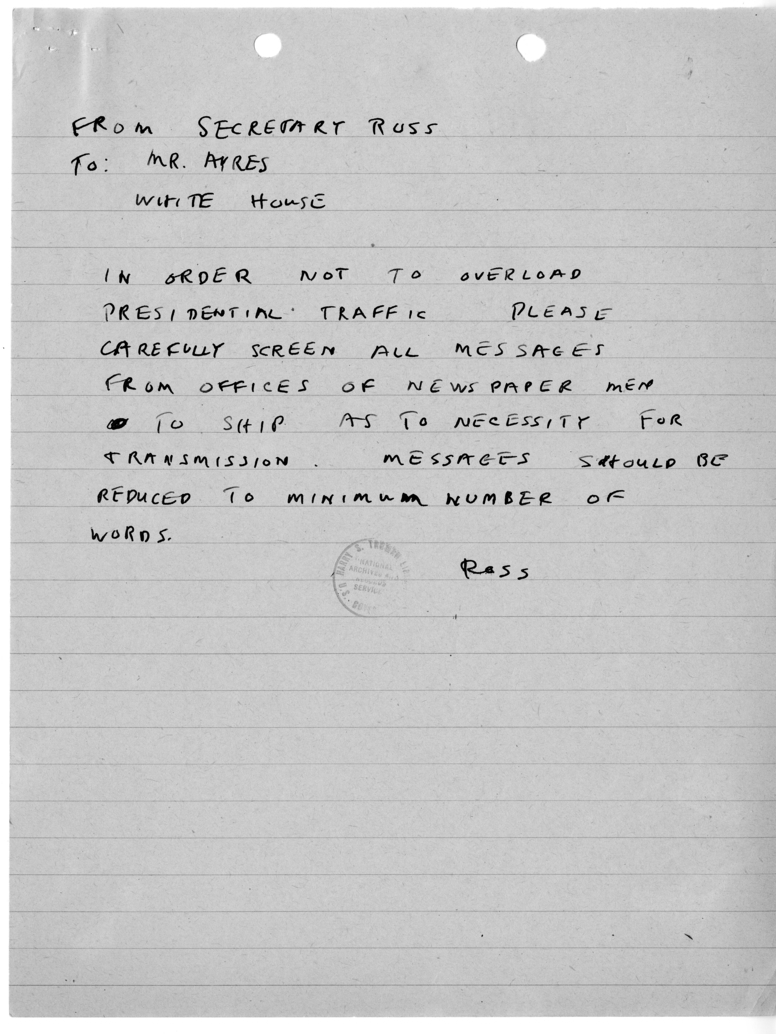 FROM SECRETARY ROSS
TO: MR. AYRES
WHITE HOUSE
IN ORDER NOT TO OVERLOAD
PRESIDENTIAL TRAFFIC PLEASE
CAREFULLY SCREEN ALL MESSAGES
FROM OFFICES OF NEWSPAPER MEN
TO SHIP AS TO NECESSITY FOR
TRANSMISSION. MESSAGES SHOULD BE
REDUCED TO MINIMUM NUMBER OF
WORDS.
Ross
HARRY S. TRUMAN
NATIONAL
ARCHIVES AND
RECORDS
SERVICE